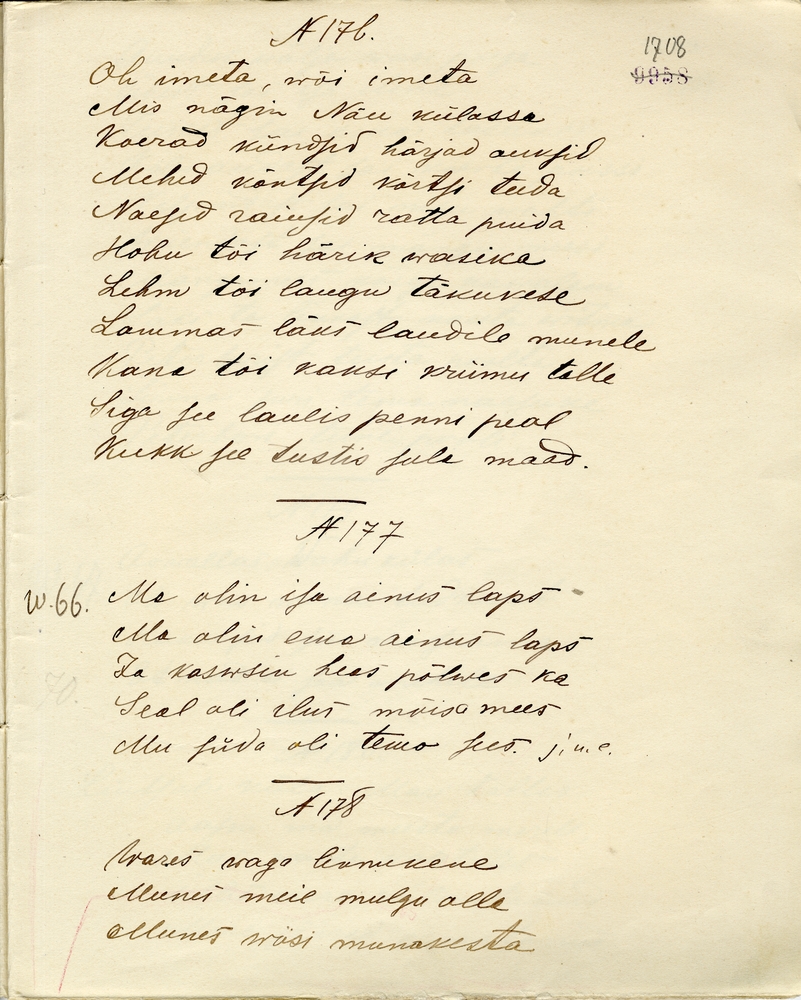 N 176.
1708
9958
Oh imeta, wõi imeta
Mis nägin Näu külassa
Koerad kündsid härjad auksid
Mehed kõntsid kõrtsi teeda
Naesed raiusid ratta puida
Hobu tõi härik wasika
Lehm tõi laugu täkukese
Lammas läks laudile munele
Kana tõi kaksi kriimu talle
Siga see laulis penni peal
Kukk see tustis sula maad.
N 177
w. 66.
Ma olin isa ainus laps
Ma olin ema ainus laps
Ja kaswsin heas põlwes ka
70.
Seal oli ilus mõisamees
Mu süda oli tema sees. j.n.e.
N 178
Wares waga linnukene
Munes meil mulgu alla
Munes wiisi munakesta